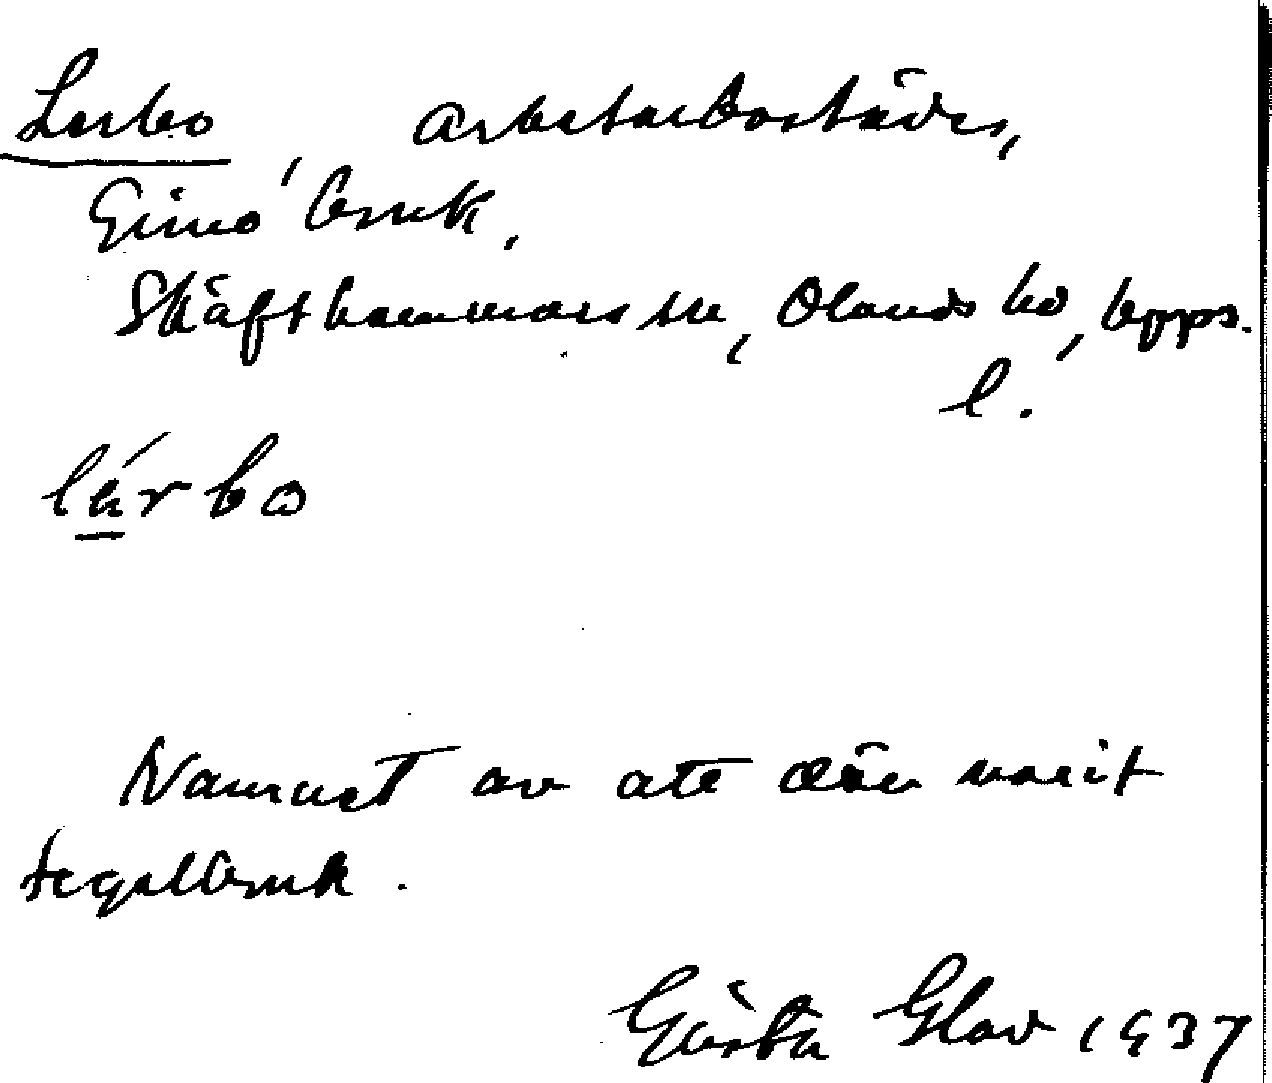 Lerbo, arbetarbostäder,
Gimo bruk,
Skäfthammars sn, Olands hd, Upps.
l.
lárbo
Namnet av att där varit
tegelbruk.
Gösta Glav 1937